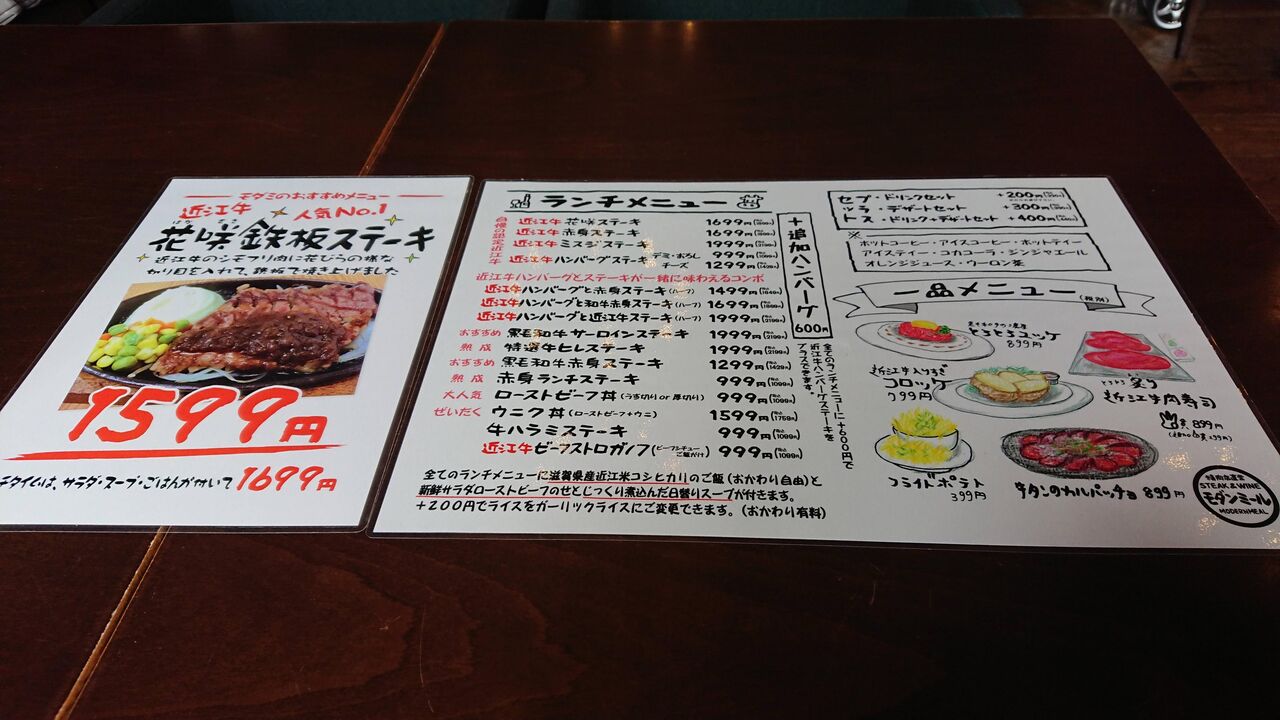 モダミのおすすめメニュー
近江牛 人気No.1
はな ざき
花咲鉄板ステーキ
近江牛のシモフリ肉に花びらの様な
切り目を入れて、鉄板で焼き上げました
1599円
チタイムは、サラダ・スープ・ごはんが付いて 1699円
ランチメニュー
自慢の認定近江牛
近江牛 花咲ステーキ 1699円
近江牛 赤身ステーキ 1699円
近江牛 ミスジステーキ 1999円
近江牛 ハンバーグステーキ デミ・おろし 999円
チーズ 1299円
近江牛ハンバーグとステーキが一緒に味わえるコンボ
近江牛ハンバーグと赤身ステーキ(ハーフ) 1499円
近江牛ハンバーグと和牛赤身ステーキ(ハーフ) 1699円
近江牛ハンバーグと近江牛ステーキ(ハーフ) 1999円
おすすめ 黒毛和牛サーロインステーキ 1999円
熟成 特選牛ヒレステーキ 1999円
おすすめ 黒毛和牛赤身ステーキ 1299円
熟成 赤身ランチステーキ 999円
大人気 ローストビーフ丼(うす切り or 厚切り) 999円
ぜいたく ウニク丼(ローストビーフ+ウニ) 1599円
牛ハラミステーキ 999円
近江牛ビーフストロガノフ(ビーフシチューご飯がけ) 999円
全てのランチメニューに滋賀県産近江米コシヒカリのご飯(おかわり自由)と
新鮮サラダローストビーフのせとじっくり煮込んだ日替りスープが付きます。
+200円でライスをガーリックライスにご変更できます。(おかわり有料)
+追加ハンバーグ
600円
全てのランチメニューに+600円で
近江牛ハンバーグステーキを
プラスできます。
セプ・ドリンクセット +200円
ッラ・デザートセット +300円
トス・ドリンク+デザートセット +400円
※
ホットコーヒー・アイスコーヒー・ホットティー
アイスティー・コカコーラ・ジンジャエール
オレンジジュース・ウーロン茶
一品メニュー(税別)
とろとろユッケ
899円
近江牛入りすぎ
コロッケ
799円
とろける 炙り
近江牛肉寿司
899円
フライドポテト
399円
牛タンのカルパッチョ 899円
STEAK & WINE
モダンミール
MODERNMEAL